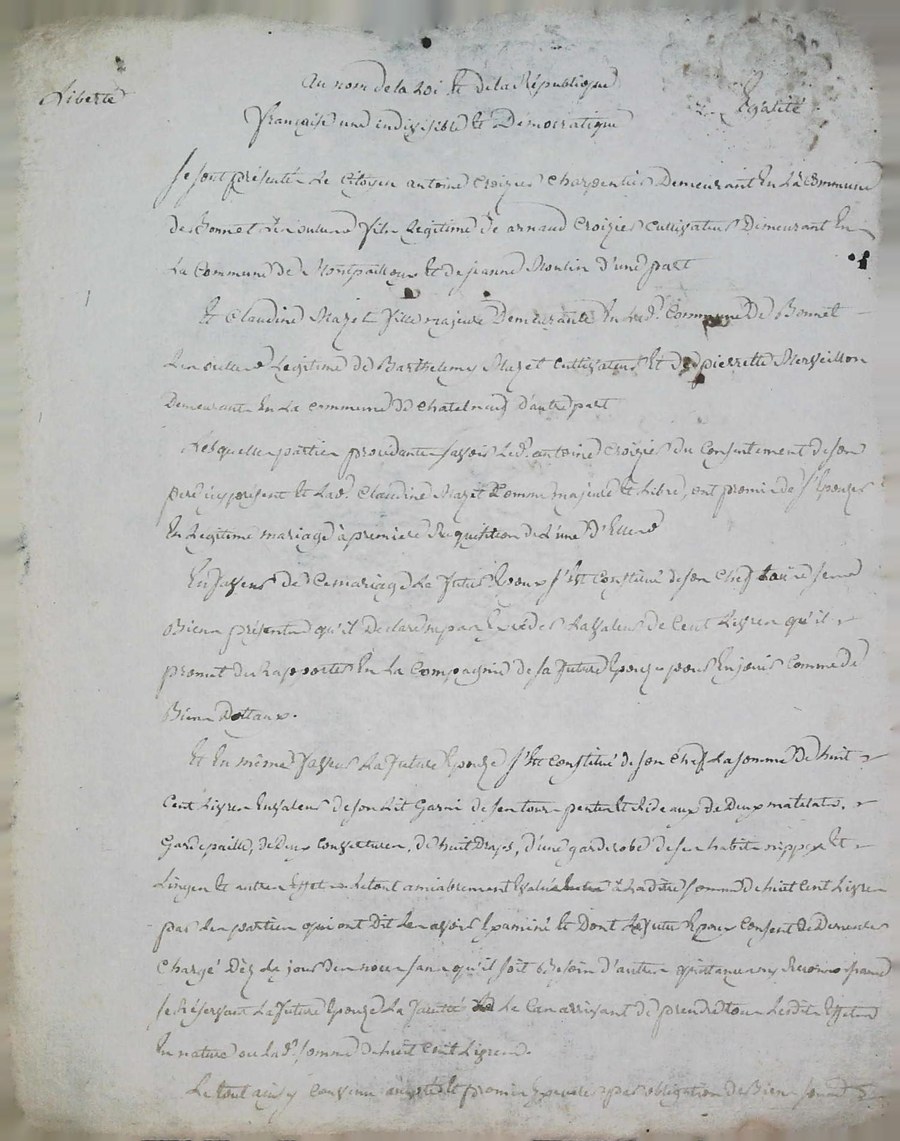 Liberté
Au nom de la Loi et de la République
Egalité
française une indivisible et Démocratique
se sont présentés Le Citoyen antoine Croizier Charpentier Demeurant En La Commune
de Bonnet fils Legitime de arnaud Croizier Cultivateur Demeurant En
La Commune de et de jeanne Moulin d'une part
Et Claudine Mazet fille majeure Demeurante En lad. Commune De Bonnet
Legitime de Barthelemy Mazet Cultivateur Et de pierrette Merveillon
Demeurants En La commune de Chatelneuf d'autre part
Lesquelles parties procedantes savoir Led. antoine Croizier du Consentement de son
pere icy present Et Lad. Claudine Mazet Comme majeure Et Libre, ont promis de s'Epouzer
En Legitime mariage à premiere Requisition de L'une d'Elles
En faveur de Ce mariage Le futur Epoux s'Est Constitué de son Chef
Biens présents qu'il Declare Exceder La valeur de Cent Livres qu'il
promet de Rapporter En La Compagnie de sa future Epouze pour En jouir Comme de
Biens dottaux.
Et En même faveur La future Epouze s'Est Constitué de son Chef La somme De huit
Cent Livres En valeur de son Lit Garni de son tour pentes Et Rideaux de Deux matelats,
Gardepaille, de deux Couvertures, de huit Draps, d'une garderobe de ses habits nippes Et
Linges Et autres Effets Le tout amiablement Evalué à La ditte somme de huit Cent Livres
par Les parties qui ont Dit Les avoir Examiné Et Dont Le futur Epoux Consent de Demeurer
Chargé Dès Le jour des noces sans qu'il soit Besoin d'autres quittances ny Reconnoissance
se Réservant La future Epouze La faculté Le Cas arrivant de prendre tous Lesdits Effets
En nature ou Lad. somme de huit Cent Livres.
Le tout ainsy convenu par obligation de Biens